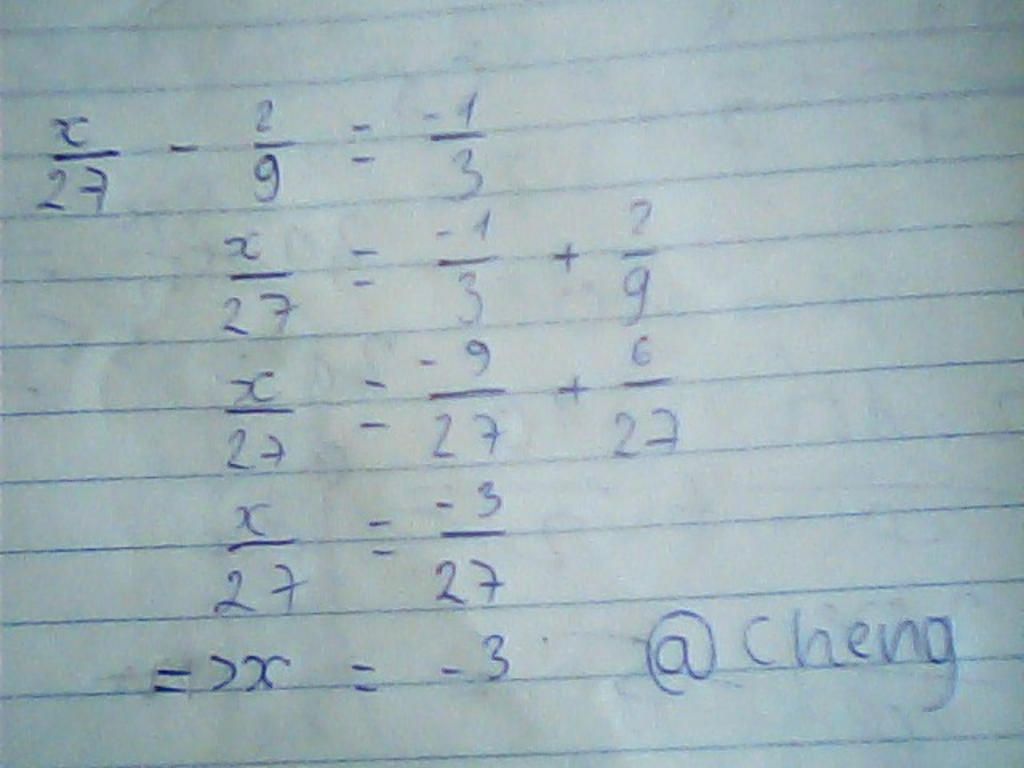 x/27 - 2/9 = -1/3
x/27 = -1/3 + 2/9
x/27 = -9/27 + 6/27
x/27 = -3/27
=> x = -3 @Cheng